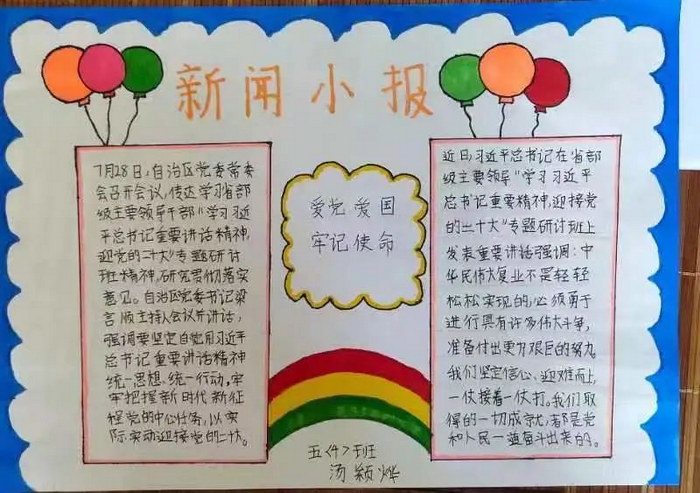 新闻小报
7月28日,自治区党委常委
会召开会议,传达学习省部
级主要领导干部“学习习近
平总书记重要讲话精神,
迎党的二十大”专题研讨
班精神,研究贯彻落实
意见。自治区党委书记梁
言顺主持人会议并讲话,
强调要坚定自觉用习近平
总书记重要讲话精神
统一思想、统一行动,牢
牢把握新时代新征
程党的中心任务,以实
际实动迎接党的二十大。
爱党爱国
牢记使命
近日,习近平总书记在省部
级主要领导“学习习近平
总书记重要精神,迎接党
的二十大”专题研讨班上
发表重要讲话强调:中
华民伟大复业不是轻轻
松松实现的,必须勇于
进行具有许多伟大斗争,
准备付出更为艰巨的努力。
我们坚定信心、迎难而上,
一仗接着一仗打。我们取
得的一切成就,都是党
和人民一道奋斗出来的。
五〈4〉班
汤颖烨